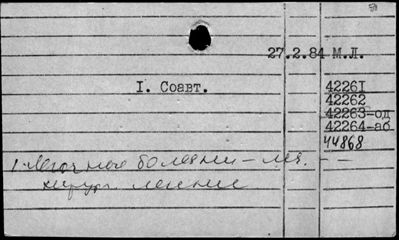 27.2.84 М.Л.
I. Соавт.
42261
42262
42263-од
42264-аб
44868
1 Легочные болезни - леч. - -
хирург. лечение